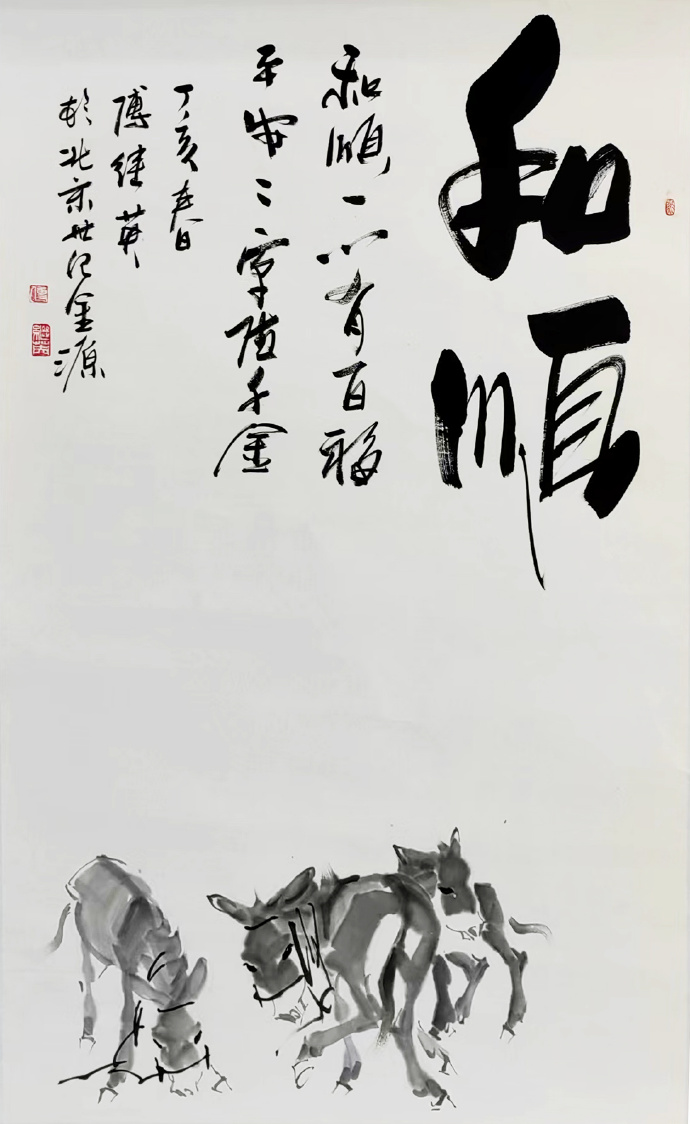 和順
和順一门有百福
平安二字值千金
丁亥春
傅继英
於北京世纪金源